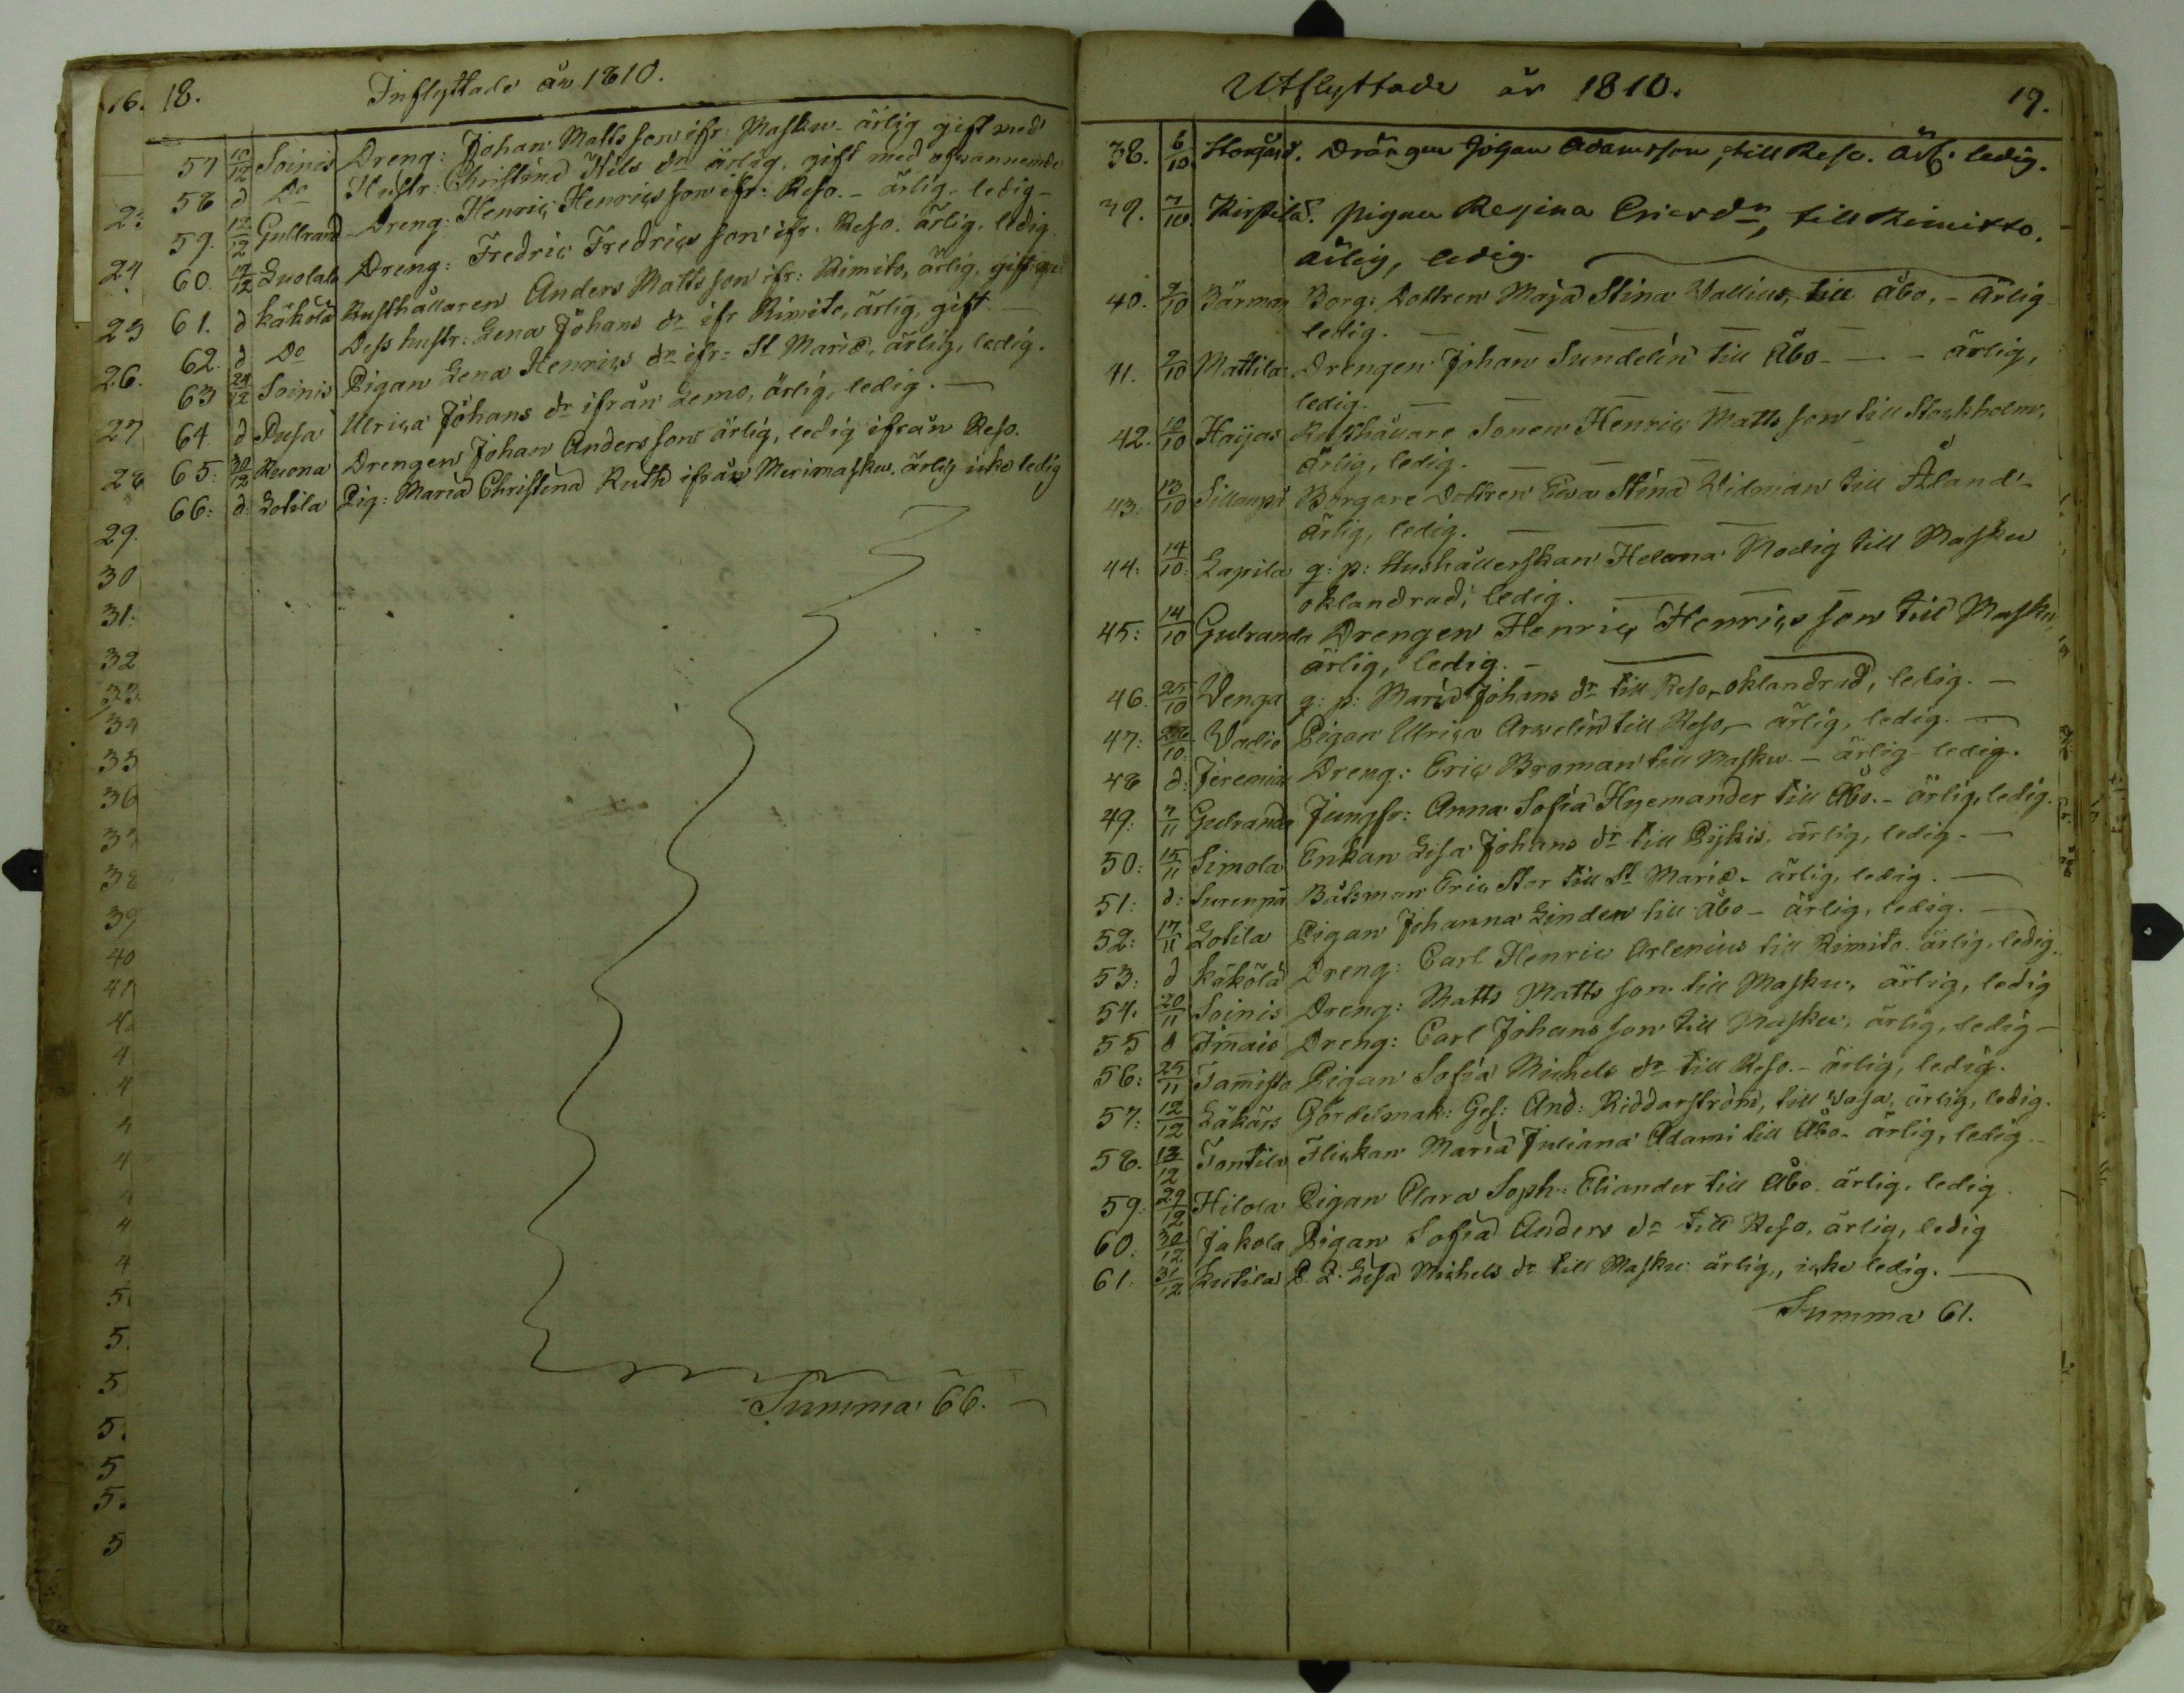 16. 18. Inflyttade år 1810.
57 10/12 Soinis Dreng: Johan Matts son ifr: Masku - ärlig gift med
58 d Do Hustr: Christina Nils dr ärlig, gift med ofvannemde
59. 12/12 Gullrand Dreng: Henric Henrics son ifr: Reso. - ärlig - ledig -
60. 19/12 Luolala Dreng: Fredric Fredrics son ifr. Reso. ärlig, ledig
61. d Käkölä Rusthållaren Anders Matts son ifr: Rimito, ärlig, gift
62. d Do Dess hustr: Lena Johans dr ifr Rimito, ärlig, gift. -
63 24/12 Soinis Pigan Lena Henrics dr ifr: St Mariæ, ärlig, ledig.
64. d Pusa Ulrica Johans dr ifrån Lemo, ärlig, ledig. -
65: 30/12 Ruona Drengen Johan Anders son ärlig, ledig ifrån Reso.
66: d: Lotila Pig: Maria Christina Ruth ifrån Merimasku. ärlig icke ledig
23
24
25
26.
27
28
29.
30
31:
32
33
34
35
36
37
38
39
40
41
Summa 66. -
Utflyttade år 1810. 19.
38. 6/10 Storgård. Drängen Johan Adamsson, till Reso. ärl: ledig.
39. 7/10. Kirppilä. pigan Regina Ericsdr, till Rimitto.
ärlig, ledig.
40. 9/10 Bärman Borg: Dottren Maja Stina Wallius, till Åbo, - ärlig
ledig. -
41. 9/10 Mattila Drengen Johan Sundelin till Åbo - - - ärlig,
ledig. -
42. 12/10 Haijas Rusthållare Sonen Henric Matts son till Stockholm,
ärlig, ledig. -
43: 13/10 Sillanpä Borgare Dottren Ewa Stina Widman till Åland -
ärlig, ledig. -
44: 14/10 Lapila q: p: Hushållerskan Helena Modig till Masku
oklandrad, ledig. -
45: 14/10 Gulranda Drengen Henric Henrics son till Masku,
ärlig, ledig. -
46. 25/10 Wenga q: p: Maria Johans dr till Reso, oklandrad, ledig. -
47: 26/10 Wadio Pigan Ulrica Arvelin till Reso, - ärlig, ledig. -
48 d: Jeremia Dreng: Eric Broman till Masku. - ärlig - ledig.
49: 7/11 Gulranda Jungfr: Anna Sofia Hyemander till Åbo. - ärlig, ledig.
50: 15/11 Simola Enkan Lisa Johans dr till Pijkis, ärlig, ledig. -
51: d: Surenpä Båtsman Eric Stor till St Mariæ - ärlig, ledig. -
52: 17/11 Lotila Pigan Johanna Linden till Åbo - ärlig, ledig. -
53: d Käkölä Dreng: Carl Henric Arlenius till Rimito. ärlig, ledig.
54. 20/11 Soinis Dreng: Matts Matts son till Masku, ärlig, ledig
55 d Immais Dreng: Carl Johans son till Masku, ärlig, ledig -
56: 25/11 Tamisto Pigan Sofia Michels dr till Reso. - ärlig, ledig.
57: 12/12 Läkärs Gördelmak: Ges: And: Riddarström, till Vasa, ärlig, ledig.
58. 13/12 Tontila Flickan Maria Juliana Adami till Åbo - ärlig, ledig. -
59: 29/12 Hilola Pigan Clara Soph: Eliander till Åbo. ärlig, ledig
60: 30/12 Jakola Pigan Sofia Anders dr till Reso, ärlig, ledig
61. 31/12 Kutila Lisa Michels dr till Masku ärlig, icke ledig. -
Summa 61.